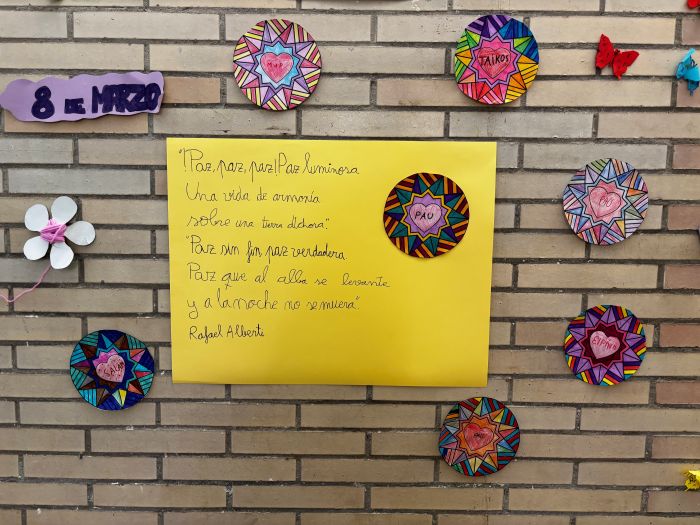 8 DE MARZO
JAIROS
"!Paz, paz, paz!Paz luminosa
Una vida de armonía
sobre una tierra dichosa".
"Paz sin fin, paz verdadera.
Paz que al alba se levante
y a la noche no se muera".
Rafael Alberti
PAU